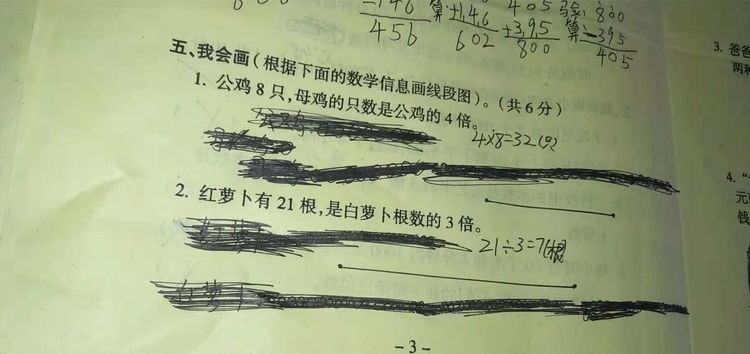 -146
456
算
+146
602
405
+395
800
验
算
800
-395
405
五、我会画(根据下面的数学信息画线段图)。(共6分)
1. 公鸡8只,母鸡的只数是公鸡的4倍。
4×8=32(只)
2. 红萝卜有21根,是白萝卜根数的3倍。
21÷3=7(根
白萝卜
3. 爸爸
两种
4. "
元
钱
-3-